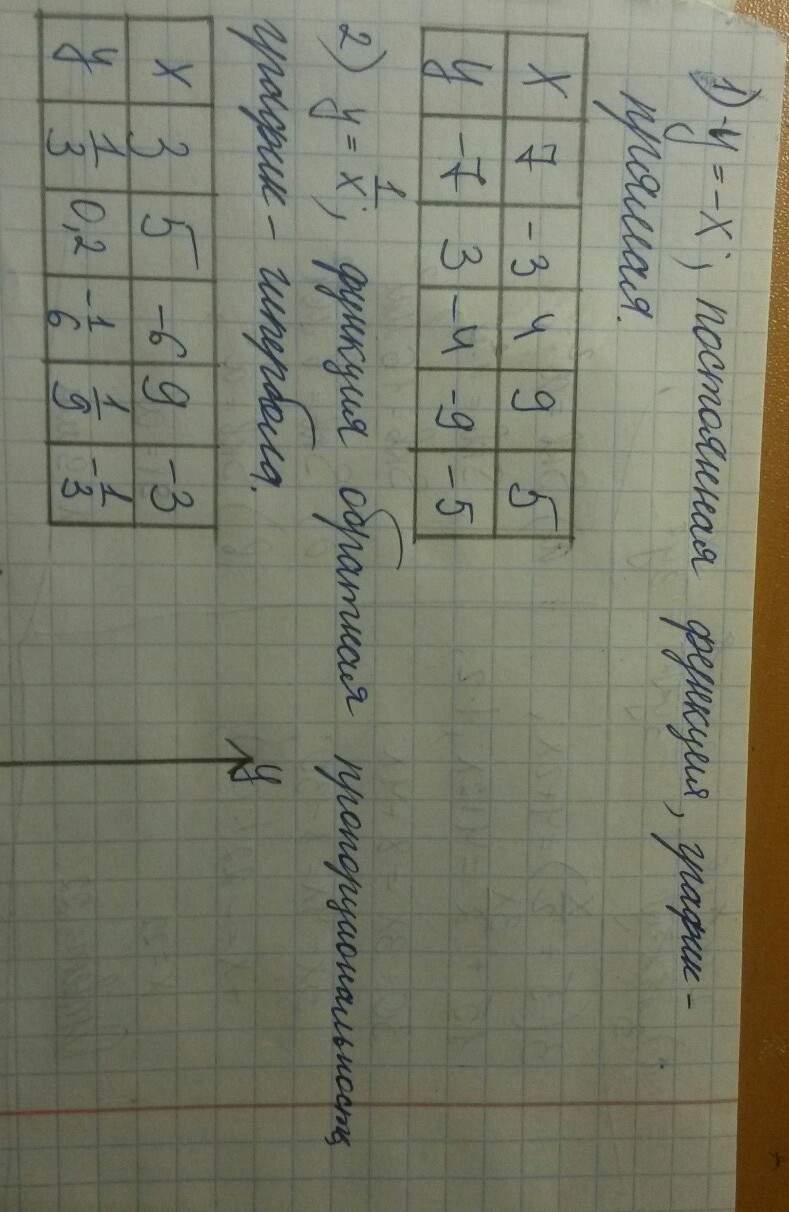 1) y = -x; постоянная функция, график -
прямая.
x 7 -3 4 9 5
y -7 3 -4 -9 -5
2) y = 1/x; функция обратная пропорциональность,
график - гипербола.
x 3 5 -6 9 -3
y 1/3 0,2 -1/6 1/9 -1/3
y